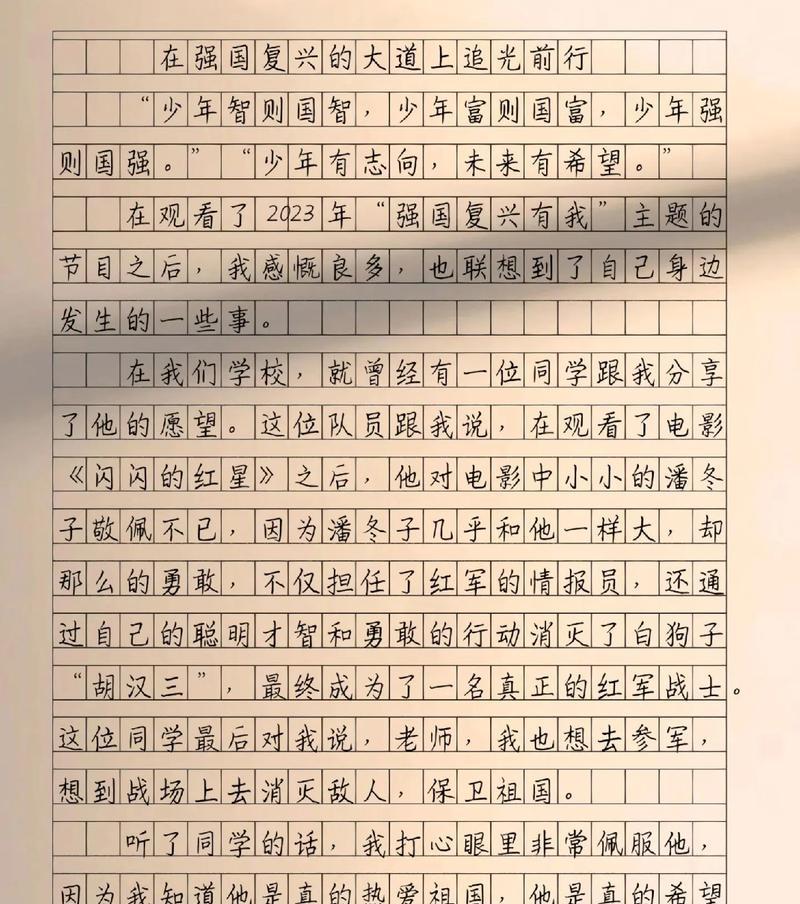 在强国复兴的大道上追光前行
“少年智则国智，少年富则国富，少年强
则国强。”“少年有志向，未来有希望。”
在观看了2023年“强国复兴有我”主题的
节目之后，我感慨良多，也联想到了自己身边
发生的一些事。
在我们学校，就曾经有一位同学跟我分享
了他的愿望。这位队员跟我说，在观看了电影
《闪闪的红星》之后，他对电影中小小的潘冬
子敬佩不已，因为潘冬子几乎和他一样大，却
那么的勇敢，不仅担任了红军的情报员，还通
过自己的聪明才智和勇敢的行动消灭了白狗子
“胡汉三”，最终成为了一名真正的红军战士。
这位同学最后对我说，老师，我也想去参军，
想到战场上去消灭敌人，保卫祖国。
听了同学的话，我打心眼里非常佩服他，
因为我知道他是真的热爱祖国，他是真的希望